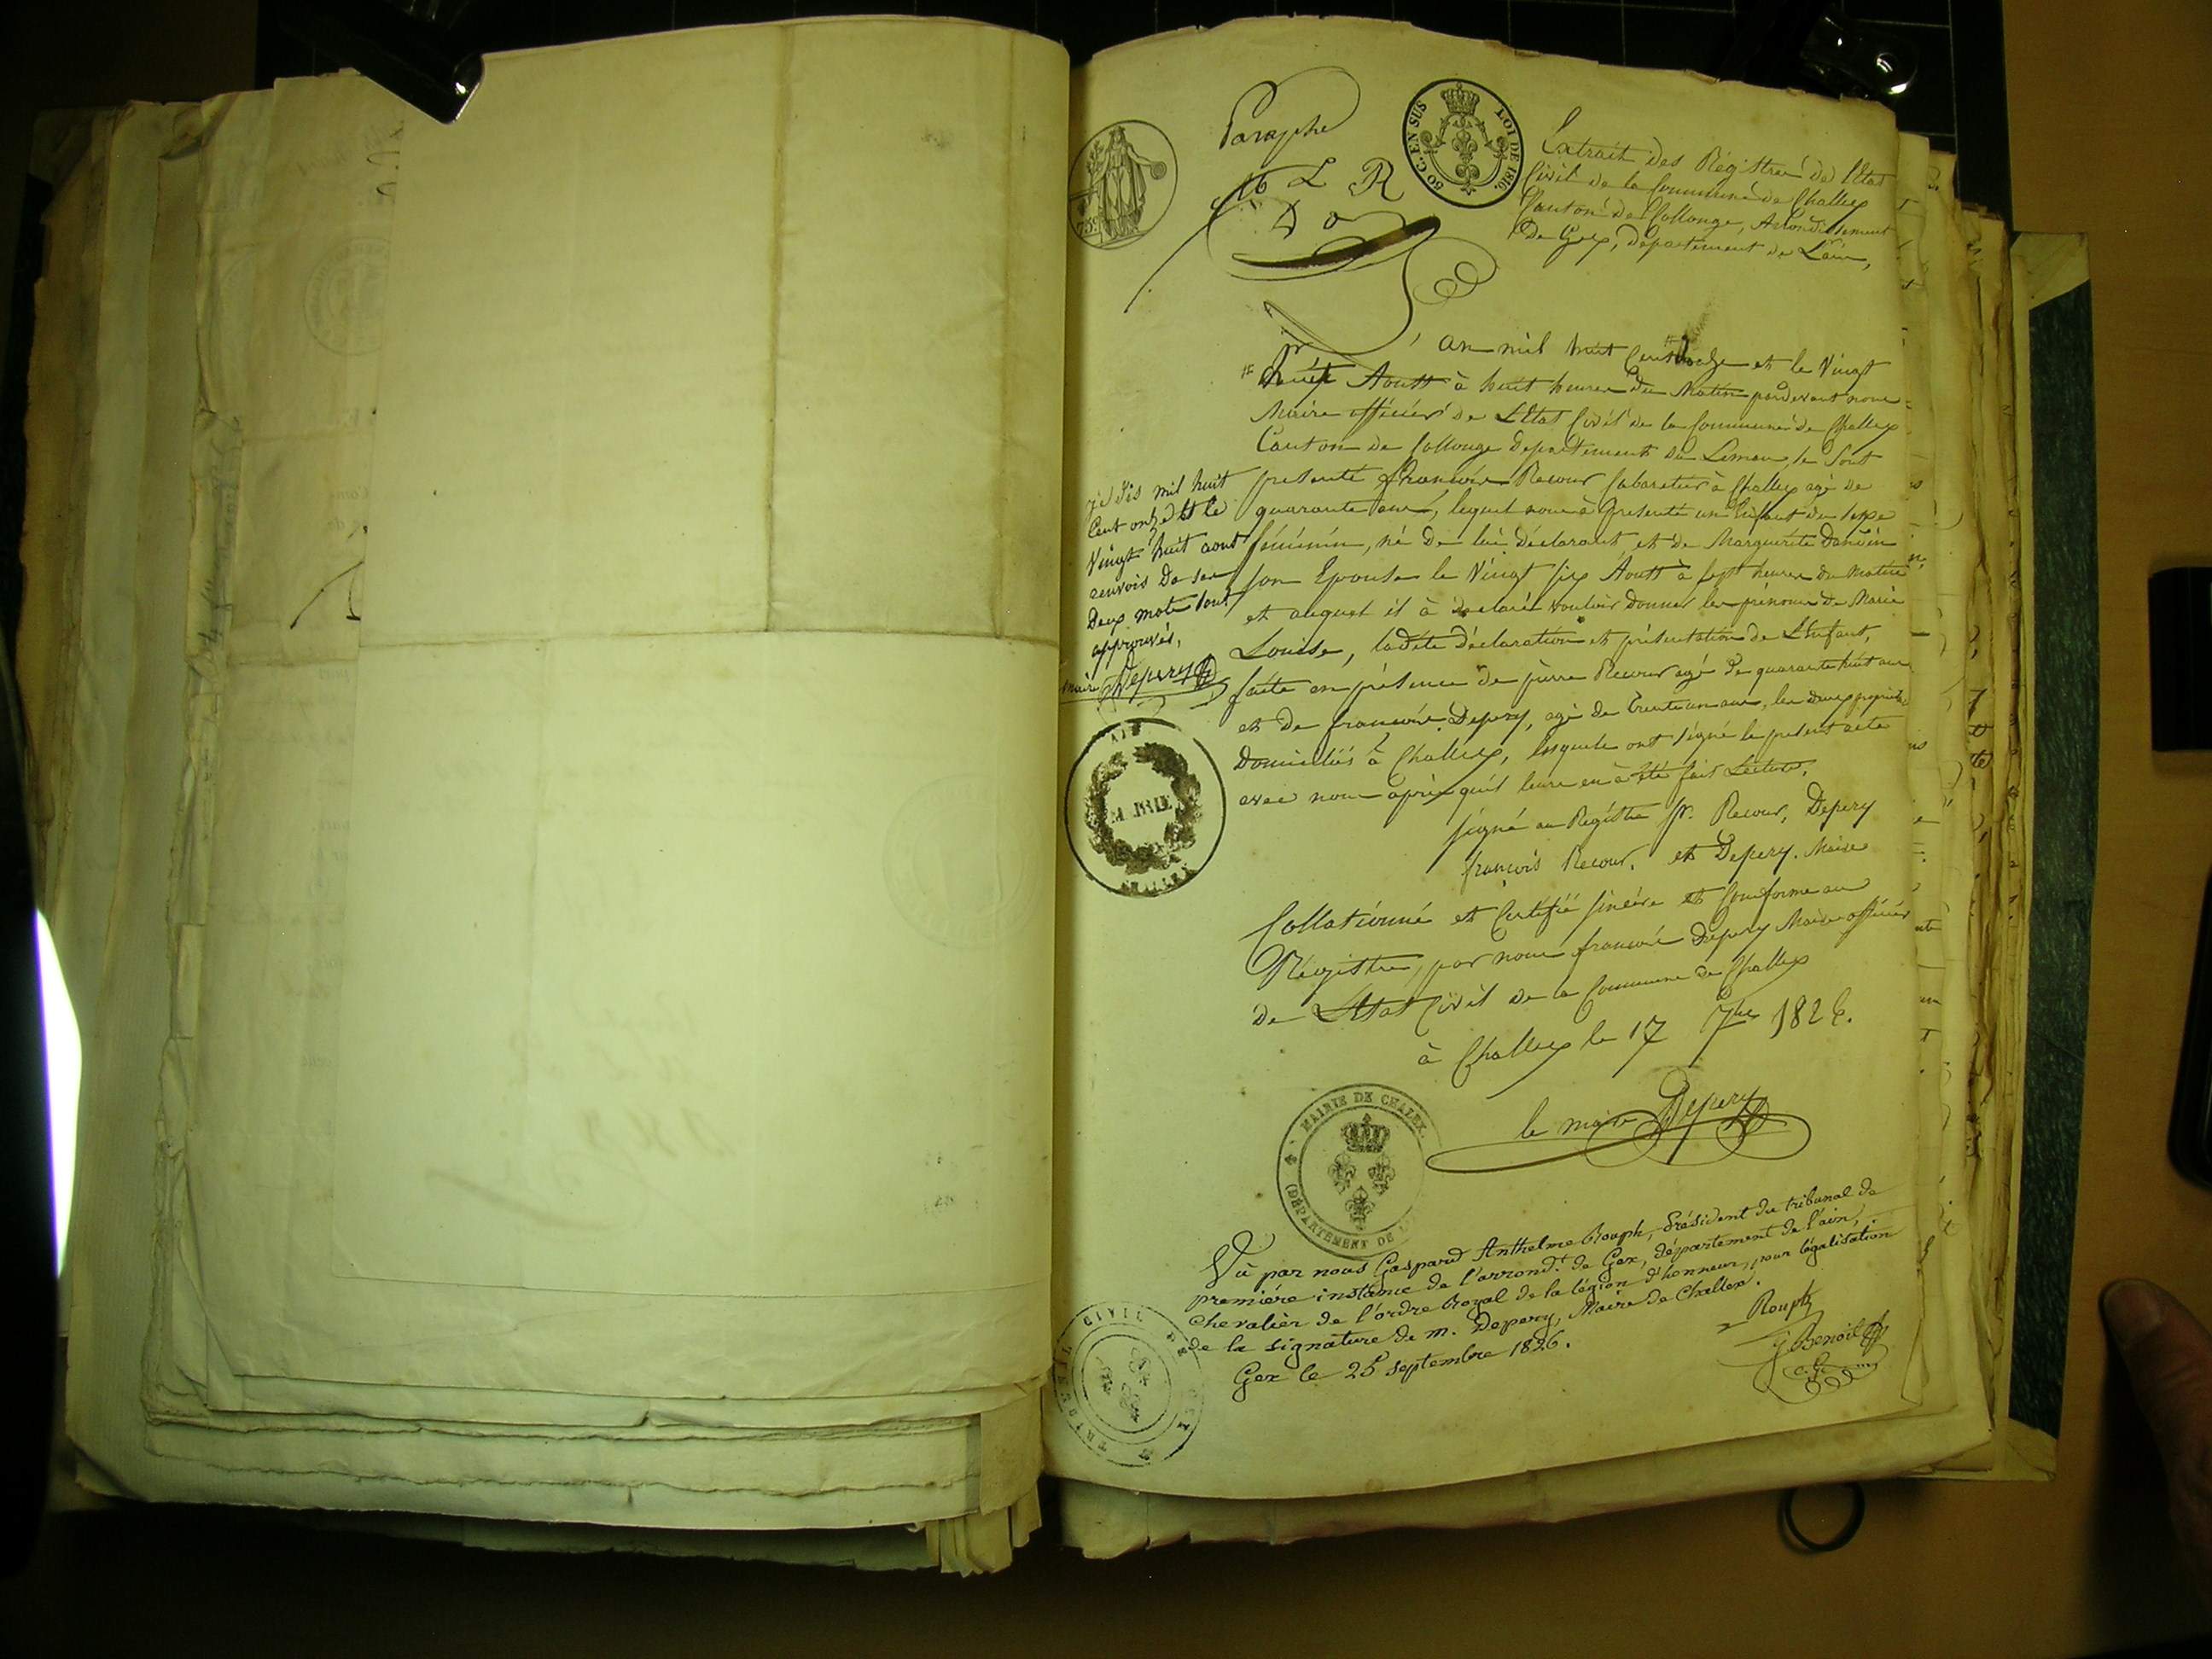 Paraphe
16 L R
50 C. EN SUS
LOI DE 1816.
75c
Extrait des Régistres de l'Etat
Civil de la Commune de Challex
Canton de Collonge, Arrondissement
De Gex, Département de L'ain,
L'an mil huit Cent onze et le Vingt
huit Aoust à huit heures du Matin pardevant nous
Maire officier de L'Etat Civil de la Commune de Challex
Canton de Collonge Departement du Leman, se sont
présenté francois Recour Cabaretier à Challex agé de
quarante ans, lequel nous à présenté un Enfant du sexe
féminin, né de lui déclarant et de Marguerite
son Epouse le Vingt six Aoust à sept heures du Matin
et auquel il à declaré vouloir donner les prénoms de Marie
Louise, ladite déclaration et présentation de L'Enfant,
faite en présence de pierre Recour agé de quarante huit ans
et de francois Depery, agé de trente un ans, les deux
Domiciliés à Challex, lesquels ont signé le présent acte
avec nous après qu'il leurs en à été fait Lecture.
signé au Régistre pr. Recour, Depery
françois Recour, et Depery. Maire
je dis mil huit
Cent onze et le
Vingt huit aout
renvois De ses
Deux mots sont
approuvés,
maire Depery
AIN
MAIRIE
CHALLEX
Collationné et Certifié sincère et Conforme au
Régistre, par nous francois Depery Maire officier
de L'Etat Civil de la Commune de Challex
à Challex le 17 7bre 1826.
le maire Depery
MAIRIE DE CHALEX,
(DÉPARTEMENT DE
Vû par nous Gaspard Anthelme Rouph, Président du tribunal de
première instance de l'arrond.t de Gex, département de l'ain,
chevalier de l'ordre Royal de la légion d'honneur, pour légalisation
de la signature de m. Depery, Maire de Challex.
Gex le 25 septembre 1826.
Rouph
Benoit
TRIBUNAL CIVIL DE